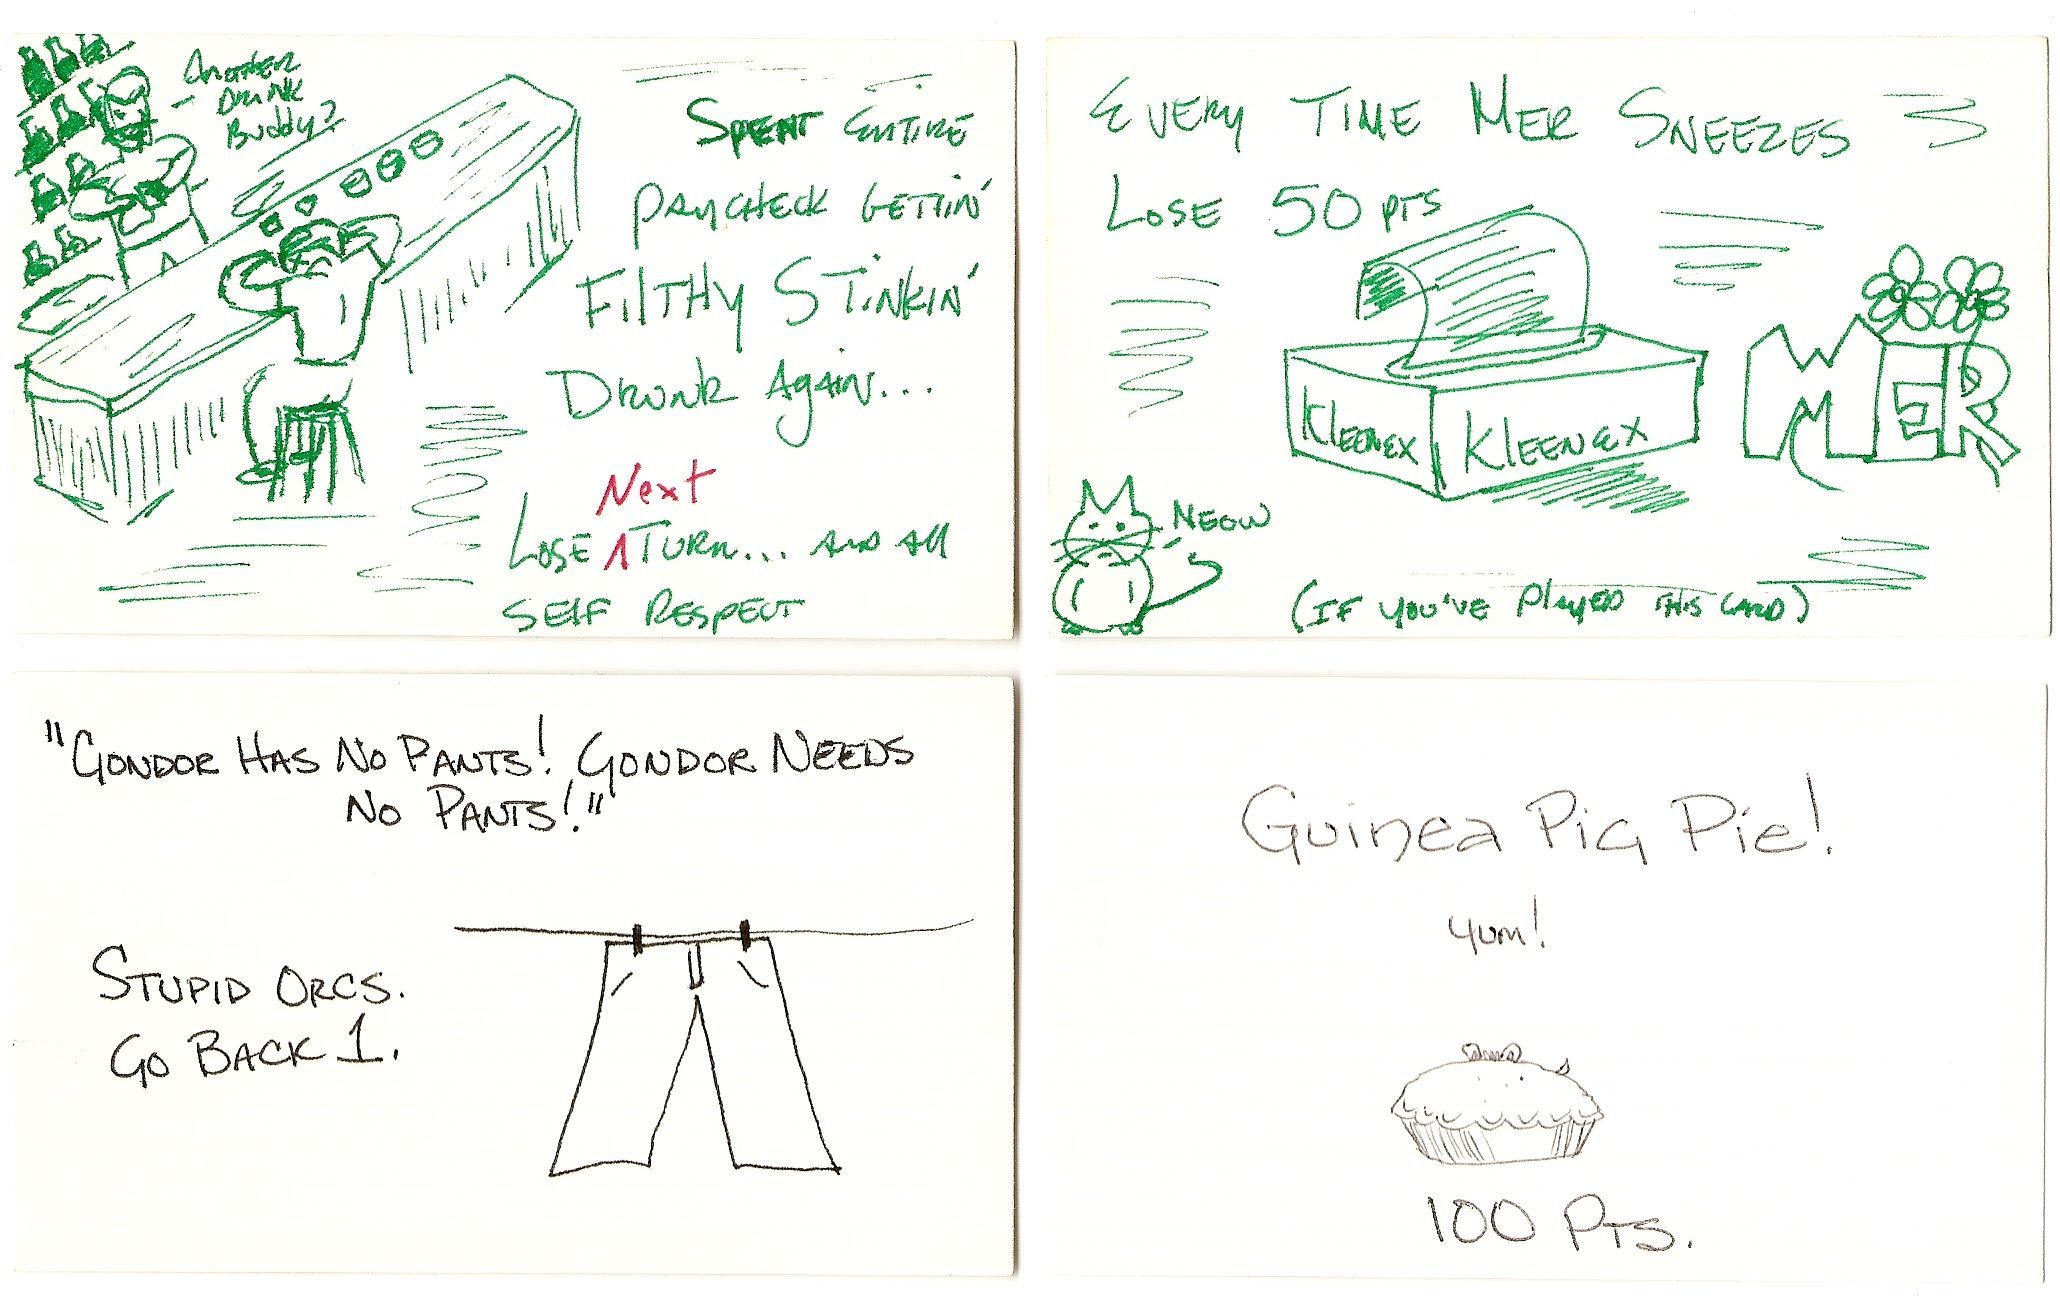 Another
Drink
Buddy?
Spent Entire
Paycheck Gettin'
Filthy Stinkin'
Drunk Again...
Next
Lose 1 Turn... And All
Self Respect
Every Time Mer Sneezes
Lose 50 pts
Kleenex Kleenex
MER
Meow
(If you've played this card)
"Gondor Has No Pants! Gondor Needs
No Pants!"
Stupid Orcs.
Go Back 1.
Guinea Pig Pie!
Yum!
100 Pts.